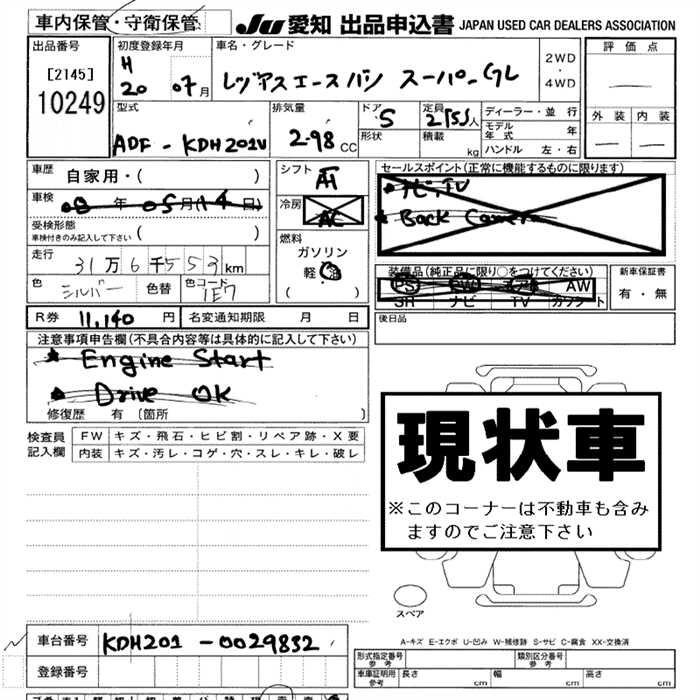 車内保管・守衛保管
JU 愛知 出品申込書 JAPAN USED CAR DEALERS ASSOCIATION
出品番号
[2145]
10249
初度登録年月
H
20 07月
車名・グレード
レジアスエースバン スーパーGL
2WD
・
4WD
評価点
外装 内装
型式
ADF - KDH201V
排気量
2-98 CC
ドア 5
形状
定員
人
積載
kg
ディーラー・並行
モデル年式 年
ハンドル 左・右
車歴 自家用・( )
車検 08年 05月(14日)
受検形態
車検付きのみ記入して下さい ( )
走行 31万6千553km
色 シルバー 色替 色コード 1E7
シフト AT
冷房 AC
燃料
ガソリン
軽・
( )
セールスポイント(正常に機能するものに限ります)
ナビ、TV
Back Camera
装備品(純正品に限り○をつけてください)
PS PW AW
SR ナビ TV カワシート
新車保証書
有・無
R券 11,140 円 名変通知期限 月 日
後日品
注意事項申告欄(不具合内容等は具体的に記入して下さい)
★ Engine Start
★ Drive OK
修復歴 有 〔箇所 〕
検査員
記入欄
FW キズ・飛石・ヒビ割・リペア跡・X要
内装 キズ・汚レ・コゲ・穴・スレ・キレ・破レ
現状車
※このコーナーは不動車も含み
ますのでご注意下さい
スペア
A-キズ E-エクボ U-凹み W-補修跡 S-サビ C-腐食 XX-交換済
車台番号 KDH201-0029832
登録番号
形式指定番号
参考
類別区分番号
参考
車庫証明用
参考
長さ cm 幅 cm 高さ cm